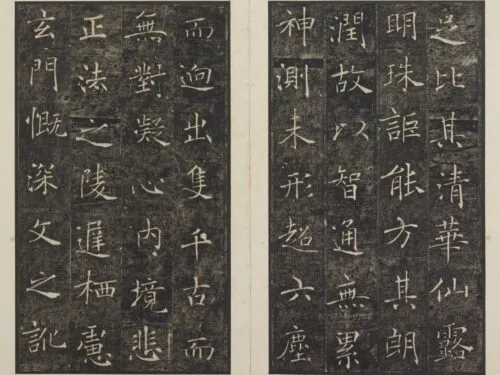 足比其清華仙露
明珠詎能方其朗
潤故以智通無累
神測未形超六塵
而迥出隻千古而
無對凝心內境悲
正法之陵遲栖慮
玄門慨深文之訛